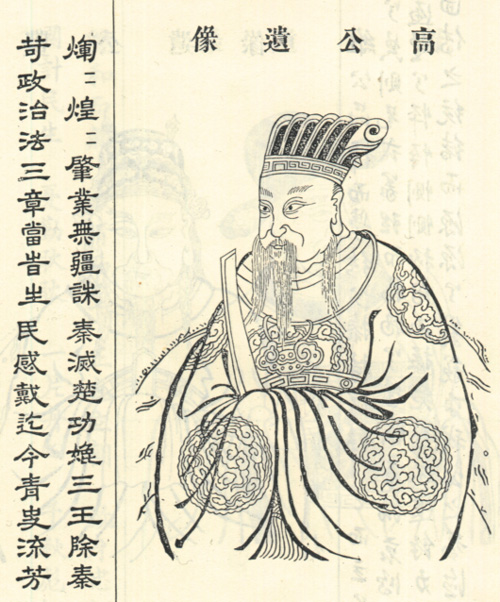 高公遺像
爛〻煌〻肇業無疆誅秦滅楚功媲三王除秦
苛政治法三章當旹生民感戴迄今青史流芳